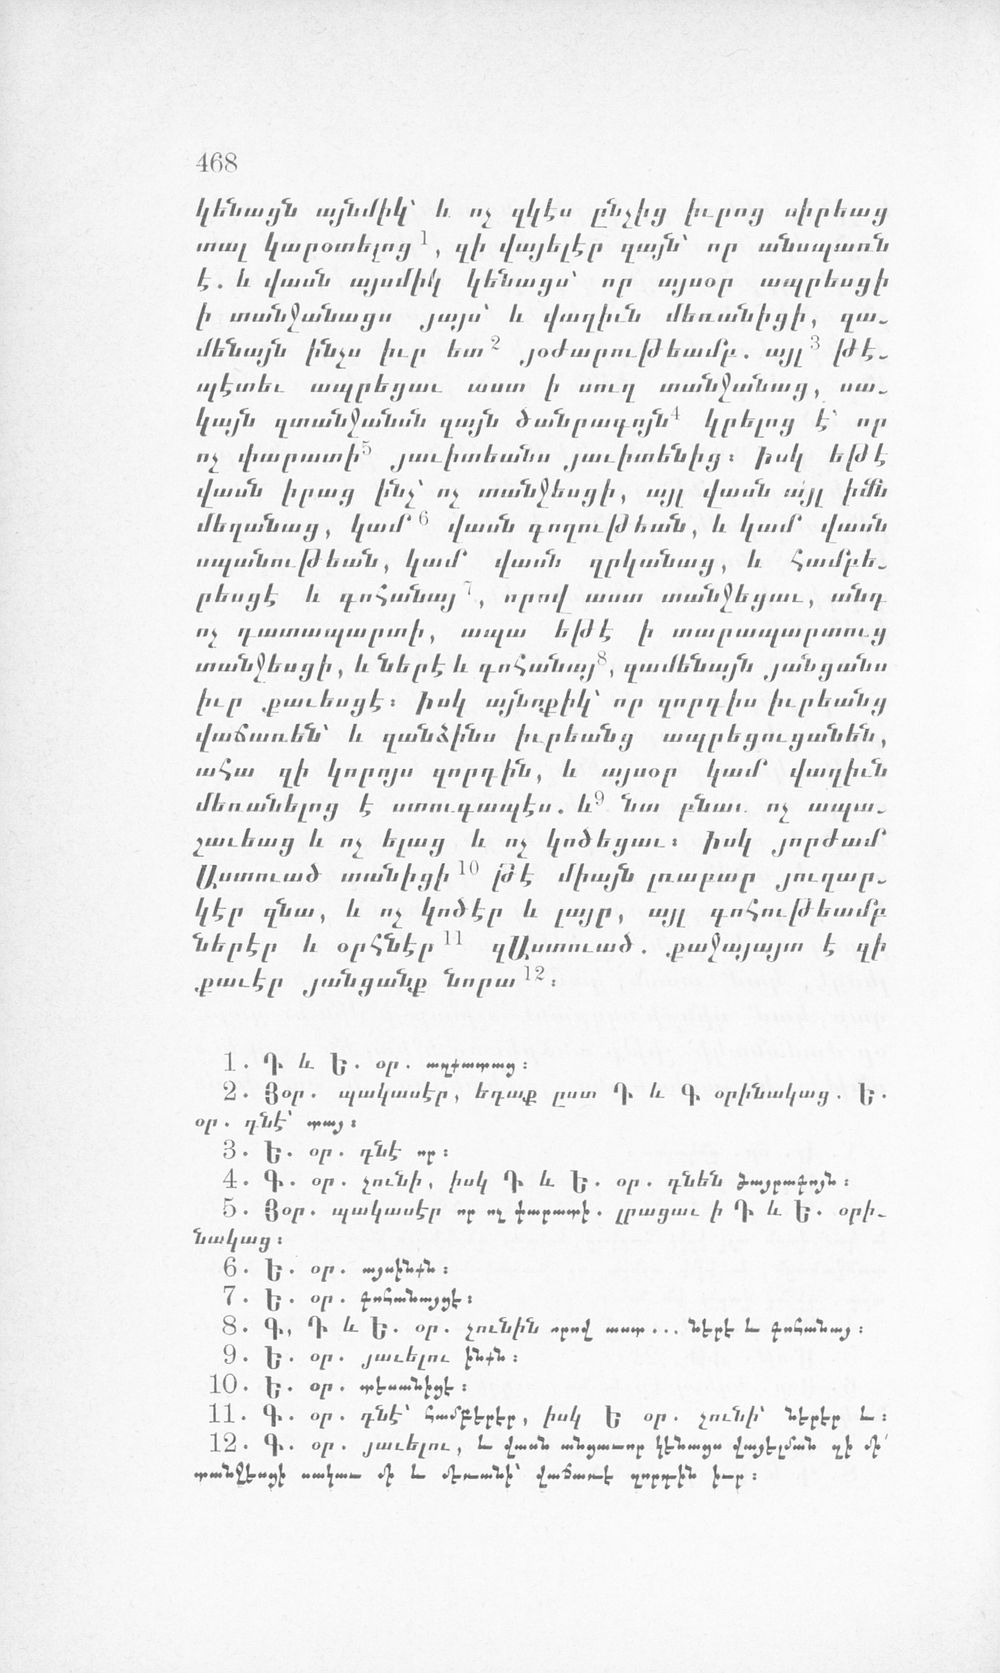 468
կենացն այնմիկ՝ և ոչ զկէս ընչից իւրոց սիրեաց
տալ կարօտելոց 1, զի վայելէր զայն՝ որ անսպառն
է. և վասն այսմիկ կենացս՝ որ այսօր ապրեսցի
ի տանջանացս յայս՝ և վաղիւն մեռանիցի, զա-
մենայն ինչս իւր ետ 2 յօժարութեամբ. այլ 3 թէ-
պէտեւ ապրեցաւ աստ ի սուղ տանջանաց, սա-
կայն զտանջանսն զայն ծանրագոյն 4 կրելոց է՝ որ
ոչ փարատի 5 յաւիտեանս յաւիտենից։ Իսկ եթէ
վասն իրաց ինչ՝ ոչ տանջեսցի, այլ վասն այլ իմն
մեղանաց, կամ 6 վասն գողութեան, և կամ վասն
սպանութեան, կամ վասն զրկանաց, և համբե-
րեսցէ և գոհանայ 7, որով աստ տանջեցաւ, անդ
ոչ դատապարտի, ապա եթէ ի տարապարտուց
տանջեսցի, և ներէ և գոհանայ 8, զամենայն յանցանս
իւր քաւեսցէ։ Իսկ այնոքիկ՝ որ զորդիս իւրեանց
վաճառեն՝ և զանձինս իւրեանց ապրեցուցանեն,
ահա զի կորոյս զորդին, և այսօր կամ վաղիւն
մեռանելոց է ստուգապէս. և 9 նա բնաւ ոչ ապա-
շաւեաց և ոչ ելաց և ոչ կոծեցաւ։ Իսկ յորժամ
Աստուած տանիցի 10 թէ միայն լռաբար յուղար-
կէր զնա, և ոչ կոծէր և լայր, այլ գոհութեամբ
ներէր և օրհնէր 11 զԱստուած. քաջայայտ է զի
քաւէր յանցանք նորա 12։
1. Դ և Ե. օր. աղքատաց։
2. Յօր. պակասէր, եդաք ըստ Դ և Գ օրինակաց. Ե.
օր. դնէ՝ տայ։
3. Ե. օր. դնէ որ։
4. Գ. օր. չունի, իսկ Դ և Ե. օր. դնեն ծայրագոյն։
5. Յօր. պակասէր որ ոչ փարատի. լրացաւ ի Դ և Ե. օրի-
նակաց։
6. Ե. օր. այսինքն։
7. Ե. օր. գոհանայցէ։
8. Գ, Դ և Ե. օր. չունին որով աստ... ներէ և գոհանայ։
9. Ե. օր. յաւելու ինքն։
10. Ե. օր. տեսանիցէ։
11. Գ. օր. դնէ՝ համբերէր, իսկ Ե օր. չունի՝ ներէր և։
12. Գ. օր. յաւելու, և վասն անցաւոր կենացս վայելման զի մի՛
տանջեսցի սակաւ մի և մեռանի՝ վաճառէ զորդին իւր։